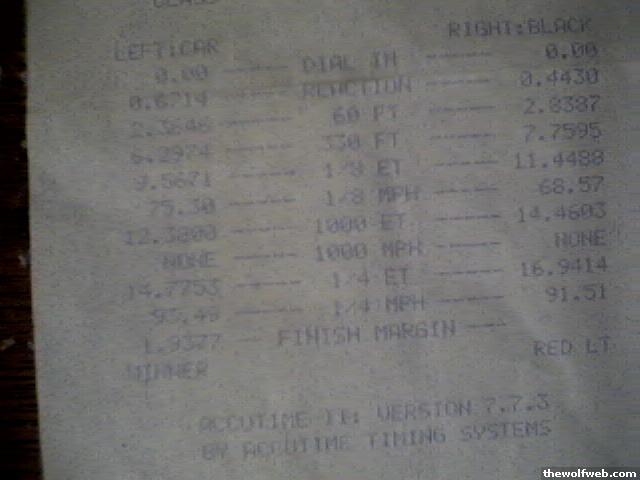 CLASS
LEFT:CAR RIGHT:BLACK
0.00 ----- DIAL IN ----- 0.00
0.6714 ----- REACTION ----- 0.4430
2.3646 ----- 60 FT ----- 2.8387
6.2974 ----- 330 FT ----- 7.7595
9.5671 ----- 1/8 ET ----- 11.4488
75.30 ----- 1/8 MPH ----- 68.57
12.3800 ----- 1000 ET ----- 14.4603
NONE ----- 1000 MPH ----- NONE
14.7753 ----- 1/4 ET ----- 16.9414
93.49 ----- 1/4 MPH ----- 91.51
1.9377 -- FINISH MARGIN ---
WINNER RED LT
ACCUTIME II: VERSION 7.7.3
BY ACCUTIME TIMING SYSTEMS
thewolfweb.com